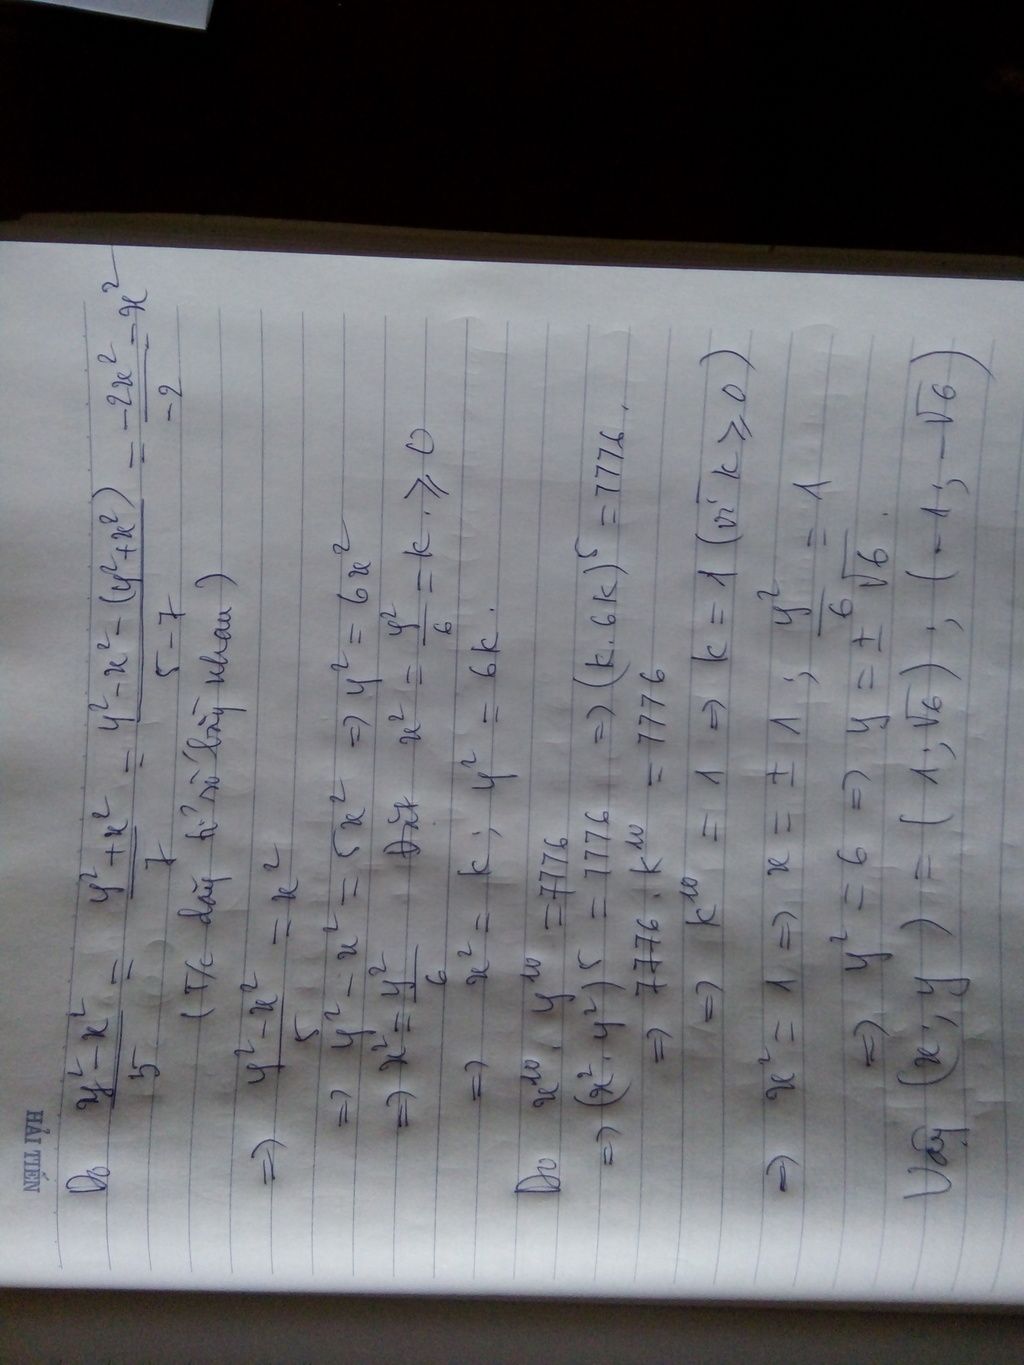 HẢI TIẾN
Do (y² - x²)/5 = (y² + x²)/7 = (y² - x² - (y² + x²))/(5 - 7) = (-2x²)/(-2) = x²
(T/c dãy tỉ số bằng nhau)
=> (y² - x²)/5 = x²
=> y² - x² = 5x² => y² = 6x²
=> x² = y²/6 Đặt x² = y²/6 = k. ⩾ 0
=> x² = k; y² = 6k.
Do x¹⁰. y¹⁰ = 7776
=> (x². y²)⁵ = 7776 => (k. 6k)⁵ = 7776.
=> 7776. k¹⁰ = 7776
=> k¹⁰ = 1 => k = 1 (vì k ⩾ 0)
=> x² = 1 => x = ± 1; y²/6 = 1
=> y² = 6 => y = ± √6.
Vậy (x; y) = (1; √6); (-1; -√6)